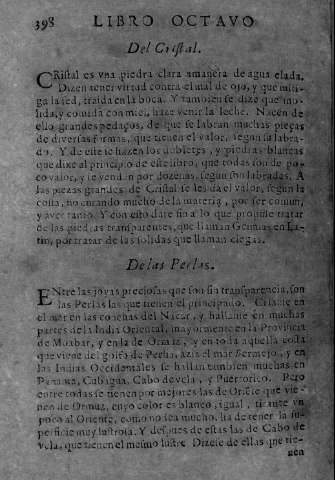 398 LIBRO OCTAVO
Del Cristal.
CRistal es vna piedra clara amanera de agua elada.
Dizen tener virtud contra el mal de ojo, y que miti-
ga la sed, traida en la boca. Y tambien se dize que mo-
lida, y comida con miel, haze venir la leche. Nacen de
ello grandes pedaços, de que se labran muchas pieças
de diversas formas, que tienen el valor, segun se labra-
do. Y de este se hazen los dobletes, y piedras blancas
que dixe al principio de este libro, que todas son de po-
co valor, y se venden por dozenas, segun son labradas. A
las piezas grandes de Cristal se les da el valor, segun la
costa, no curando mucho de la materia, por ser comun,
y aver tanto. Y con esto darè fin a lo que propuse tratar
de las piedras transparentes, que llaman Gemmas en La-
tin, por tratar de las solidas que llaman ciegas.
De las Perlas.
ENtre las joyas preciosas que son sin transparencia, son
las Perlas las que tienen el principado. Crianse en
el mar en las conchas del Nacar, y hallanse en muchas
partes de la India Oriental, mayormente en la Provincia
de Moabar, y en la de Ormuz, y en toda aquella costa
que viene del golfo de Persia, azia el mar Bermejo, y en
las Indias Occidentales se hallan tambien muchas en
Panama, Cubagua, Cabo de vela, y Puerto rico. Pero
entre todas se tienen por mejores las de Oriente que vie-
nen de Ormuz, cuyo color es blanco, igual, tirante vn
poco al Oriente, como no sea mucho. ha de tener la su-
perficie muy lustrosa. Y despues de estas las de Cabo de
vela, que tienen el mesmo lustre Dizese de ellas que tie-
nen